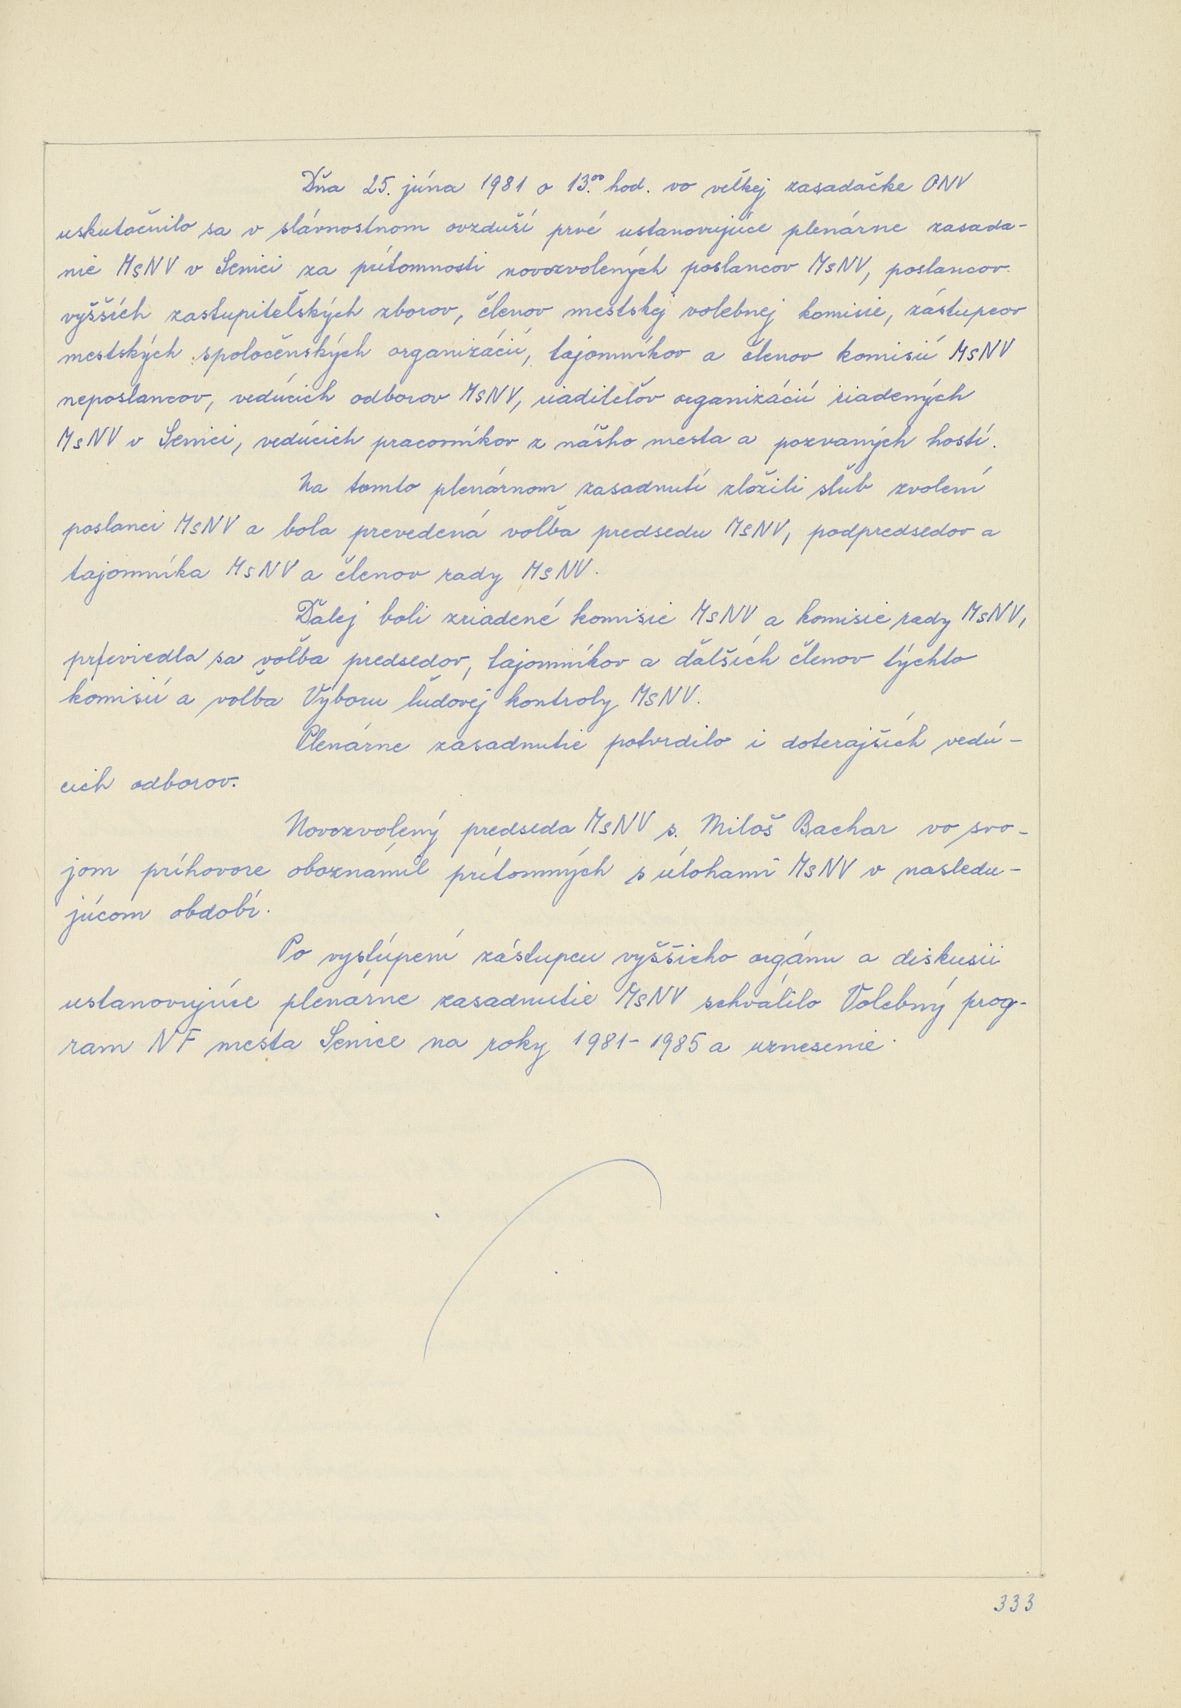 Dňa 25. júna 1981 o 13.⁰⁰ hod. vo veľkej zasadačke ONV
uskutočnilo sa v slávnostnom ovzduší prvé ustanovujúce plenárne zasada-
nie MsNV v Senici za prítomnosti novozvolených poslancov MsNV, poslancov
vyšších zastupiteľských zborov, členov mestskej volebnej komisie, zástupcov
mestských spoločenských organizácií, tajomníkov a členov komisií MsNV
neposlancov, vedúcich odborov MsNV, riaditeľov organizácií riadených
MsNV v Senici, vedúcich pracovníkov z nášho mesta a pozvaných hostí.
Na tomto plenárnom zasadnutí zložili sľub zvolení
poslanci MsNV a bola prevedená voľba predsedu MsNV, podpredsedov a
tajomníka MsNV a členov rady MsNV.
Ďalej boli zriadené komisie MsNV a komisie rady MsNV,
previedla sa voľba predsedov, tajomníkov a ďalších členov týchto
komisií a voľba Výboru ľudovej kontroly MsNV.
Plenárne zasadnutie potvrdilo i doterajších vedú-
cich odborov.
Novozvolený predseda MsNV s. Miloš Bachar vo svo-
jom príhovore oboznámil prítomných s úlohami MsNV v nasledu-
júcom období.
Po vystúpení zástupcu vyššieho orgánu a diskusii
ustanovujúce plenárne zasadnutie MsNV schválilo Volebný prog-
ram NF mesta Senice na roky 1981-1985 a uznesenie.
333